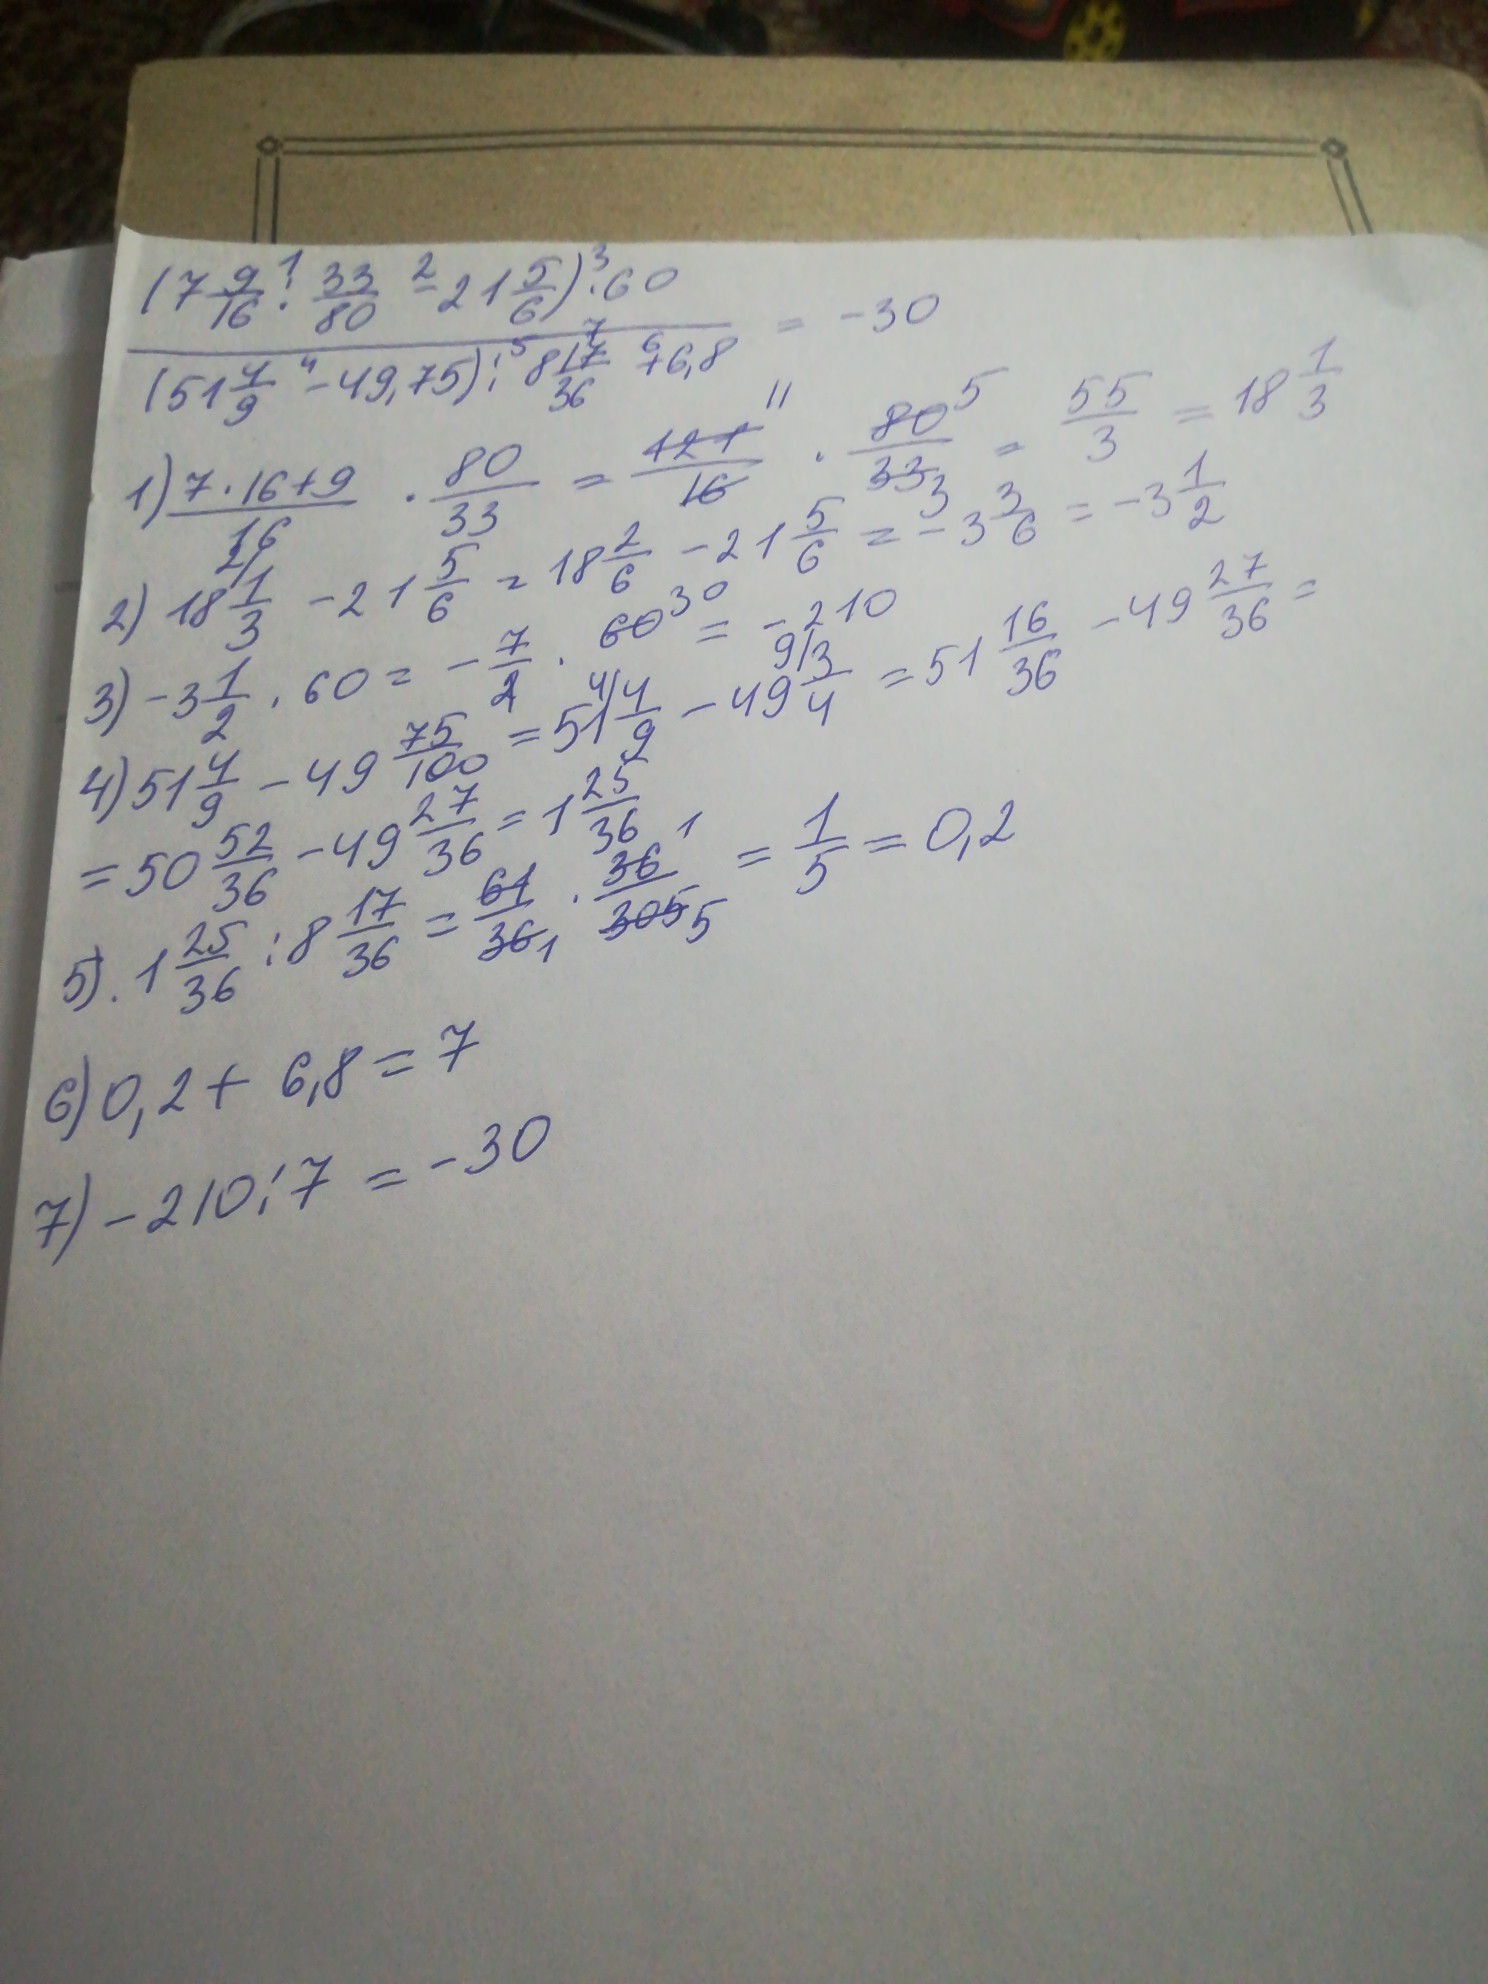 (7 9/16 : 33/80 - 21 5/6) · 60
(51 4/9 - 49,75) : 8 17/36 + 6,8 = -30
1) (7·16+9)/16 · 80/33 = 121/16 · 80/33 = 55/3 = 18 1/3
2) 18 1/3 - 21 5/6 = 18 2/6 - 21 5/6 = -3 3/6 = -3 1/2
3) -3 1/2 · 60 = -7/2 · 60 = -210
4) 51 4/9 - 49 75/100 = 51 4/9 - 49 3/4 = 51 16/36 - 49 27/36 =
= 50 52/36 - 49 27/36 = 1 25/36
5). 1 25/36 : 8 17/36 = 61/36 · 36/305 = 1/5 = 0,2
6) 0,2 + 6,8 = 7
7) -210 : 7 = -30